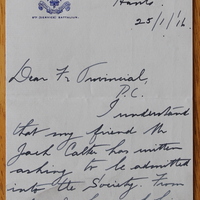 Hants.
25/1/16.
Dear Fr Provincial,
P.C.
I understand
that my friend Mr
Jack Calter has written
asking to be admitted
into the Society. From